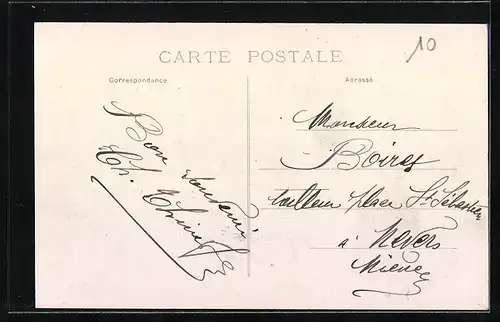 CARTE POSTALE
10
Correspondance
Adresse
Bon souvenir
Ch.
Monsieur
Boires
place St Sébastien
à Nevers
Nièvre